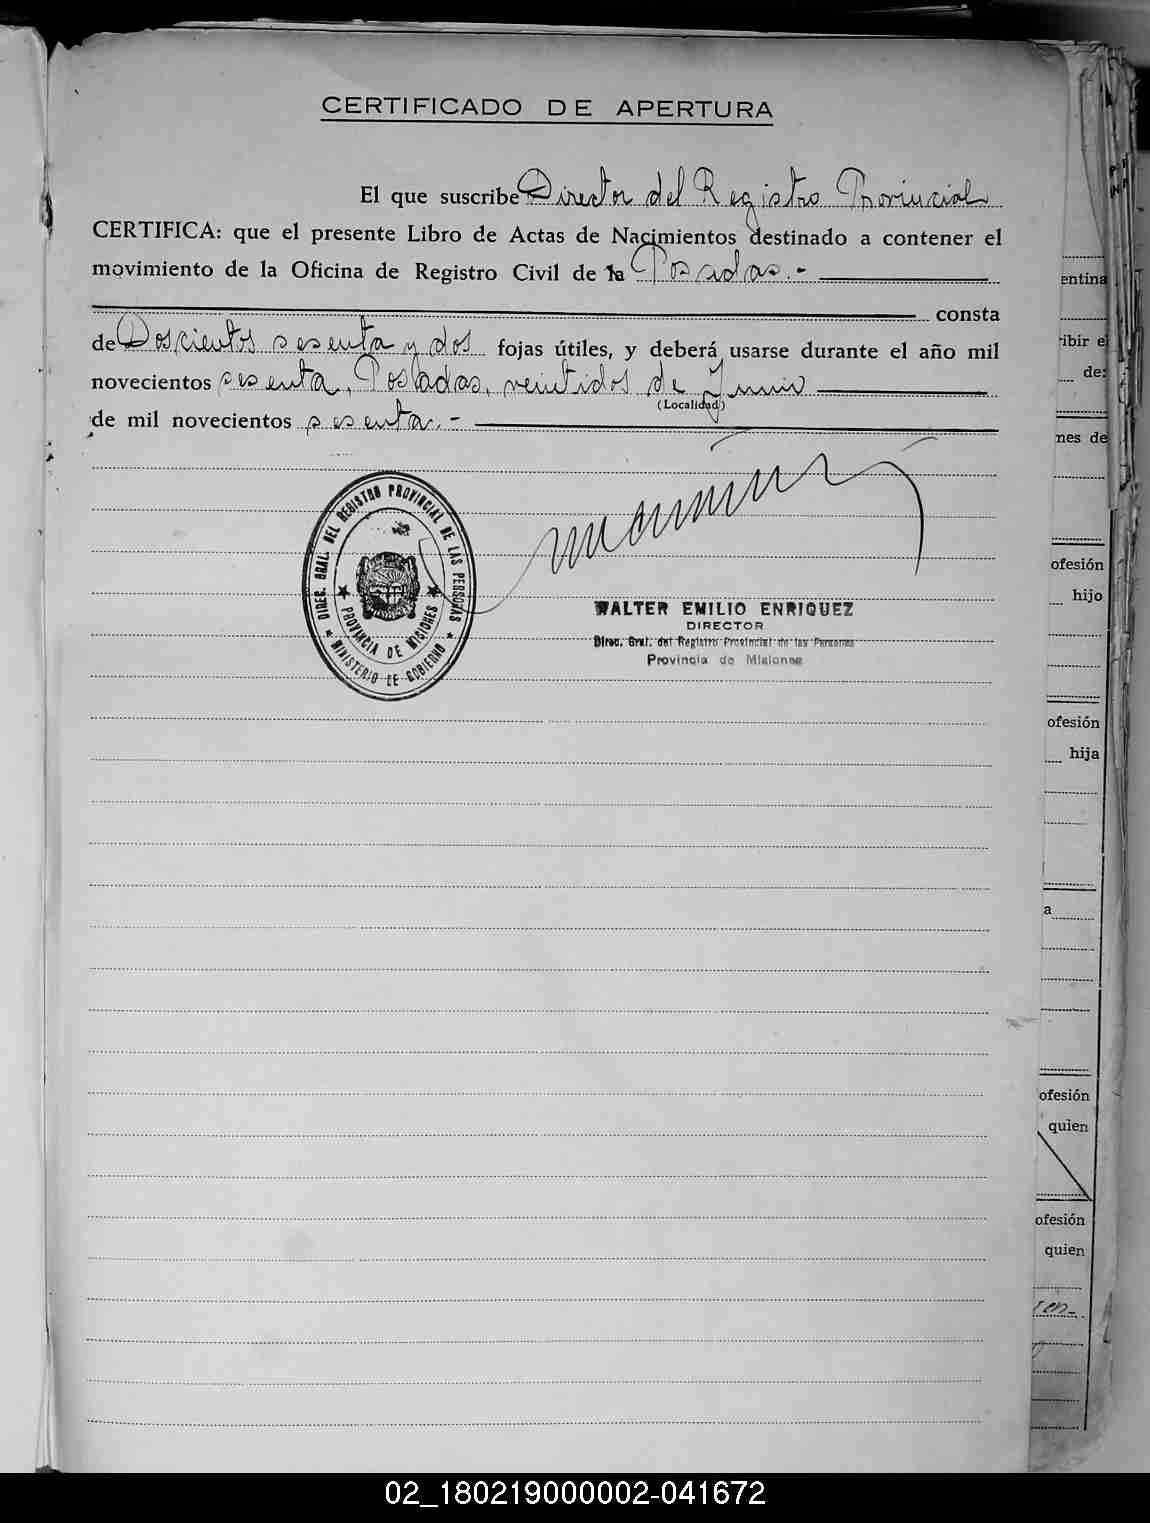 CERTIFICADO DE APERTURA
El que suscribe Director del Registro Provincial
CERTIFICA: que el presente Libro de Actas de Nacimientos destinado a contener el
movimiento de la Oficina de Registro Civil de la Posadas.-
consta
de Doscientos sesenta y dos fojas útiles, y deberá usarse durante el año mil
novecientos sesenta, Posadas, veintidos de Junio
(Localidad)
de mil novecientos sesenta.-
DIREC. GRAL. DEL REGISTRO PROVINCIAL DE LAS PERSONAS
MINISTERIO DE GOBIERNO
PROVINCIA DE MISIONES
WALTER EMILIO ENRIQUEZ
DIRECTOR
Direc. Gral. del Registro Provincial de las Personas
Provincia de Misiones
entina
ribir e
de:
nes de
ofesión
hijo
ofesión
hija
a
ofesión
quien
ofesión
quien
02_180219000002-041672